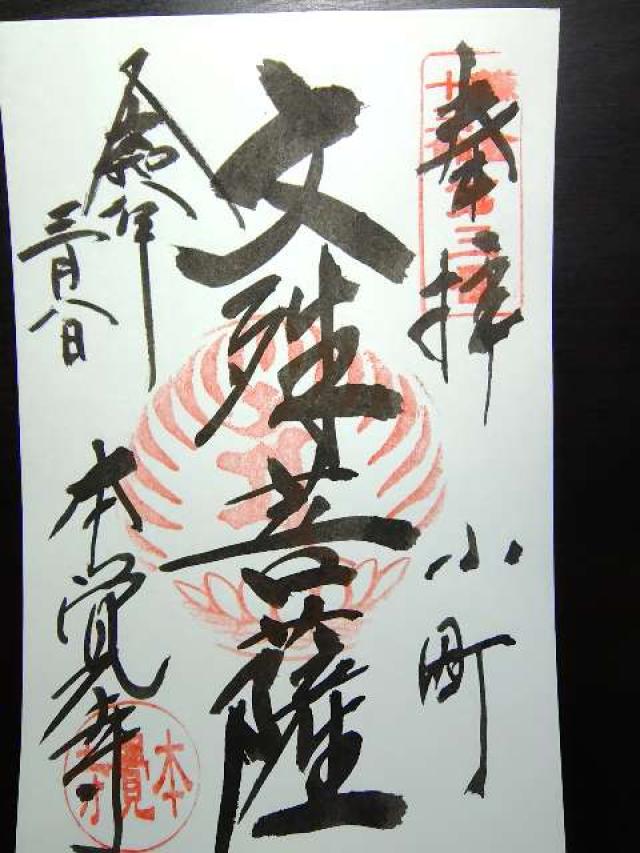 奉拝
小町
文殊菩薩
令和
三月八日
本覚寺
本覺寺